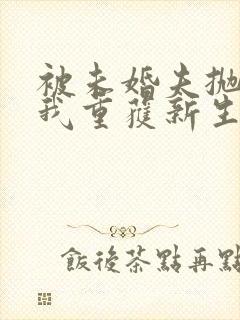 被未婚夫抛
我重獲新生
飯後茶點再點